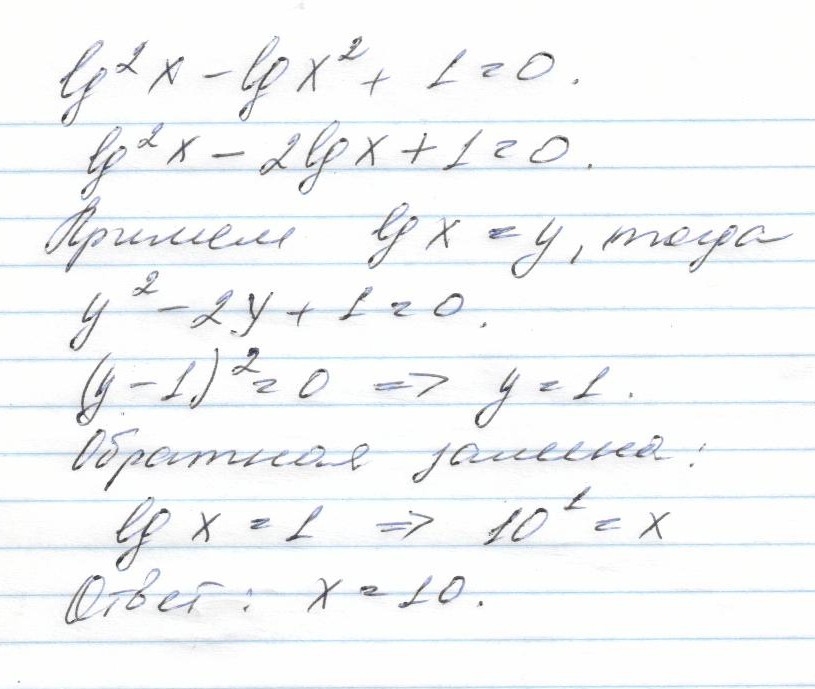 lg²x - lgx² + 1 = 0.
lg²x - 2lgx + 1 = 0.
Примем lg x = y, тогда
y² - 2y + 1 = 0.
(y - 1)² = 0 => y = 1.
Обратная замена:
lg x = 1 => 10¹ = x
Ответ: x = 10.